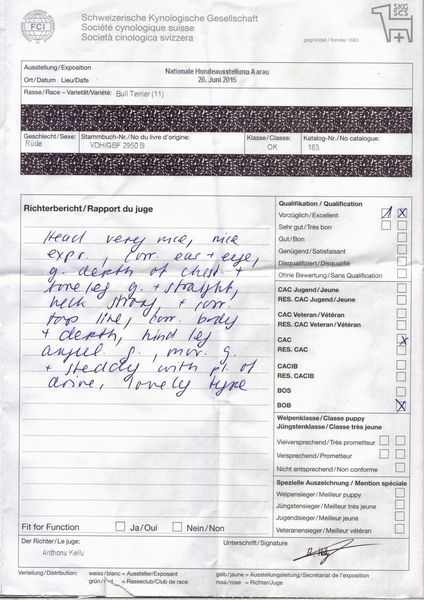 FCI
Schweizerische Kynologische Gesellschaft
Société cynologique suisse
Società cinologica svizzera
gegründet / fondée 1883
SKG
SCS
Ausstellung/Exposition
Ort/Datum Lieu/Date
Nationale Hundeausstellung Aarau
20. Juni 2015
Rasse/Race – Varietät/Variété: Bull Terrier (11)
Geschlecht/Sexe: Rüde
Stammbuch-Nr./No du livre d'origine: VDH/GBF 2950 B
Klasse/Classe: OK
Katalog-Nr./No catalogue: 183
Richterbericht/Rapport du juge
Head very nice, nice
expr., corr. ear + eye,
g. depth of chest +
foreleg g. + straight,
neck strong, + corr.
top line, corr. body
+ depth, hind leg
angul. g., mov. g.
+ steddy with pl. of
drive, lovely type
Fit for Function Ja/Oui Nein/Non
Qualifikation / Qualification
Vorzüglich/Excellent 1 X
Sehr gut/Très bon
Gut/Bon
Genügend/Satisfaisant
Disqualifiziert/Disqualifié
Ohne Bewertung/Sans Qualification
CAC Jugend/Jeune
RES. CAC Jugend/Jeune
CAC Veteran/Vétéran
RES. CAC Veteran/Vétéran
CAC X
RES. CAC
CACIB
RES. CACIB
BOS
BOB X
Welpenklasse/Classe puppy
Jüngstenklasse/Classe très jeune
Vielversprechend/Très prometteur
Versprechend/Prometteur
Nicht entsprechend/Non conforme
Spezielle Auszeichnung / Mention spéciale
Welpensieger/Meilleur puppy
Jüngstensieger/Meilleur très jeune
Jugendsieger/Meilleur jeune
Veteranensieger/Meilleur vétéran
Der Richter/Le juge:
Anthony Kelly
Unterschrift/Signature
Verteilung/Distribution: weiss/blanc = Aussteller/Exposant
gelb/jaune = Ausstellungsleitung/Secrétariat de l'exposition
= Rasseclub/Club de race
rosa/rose = Richter/Juge